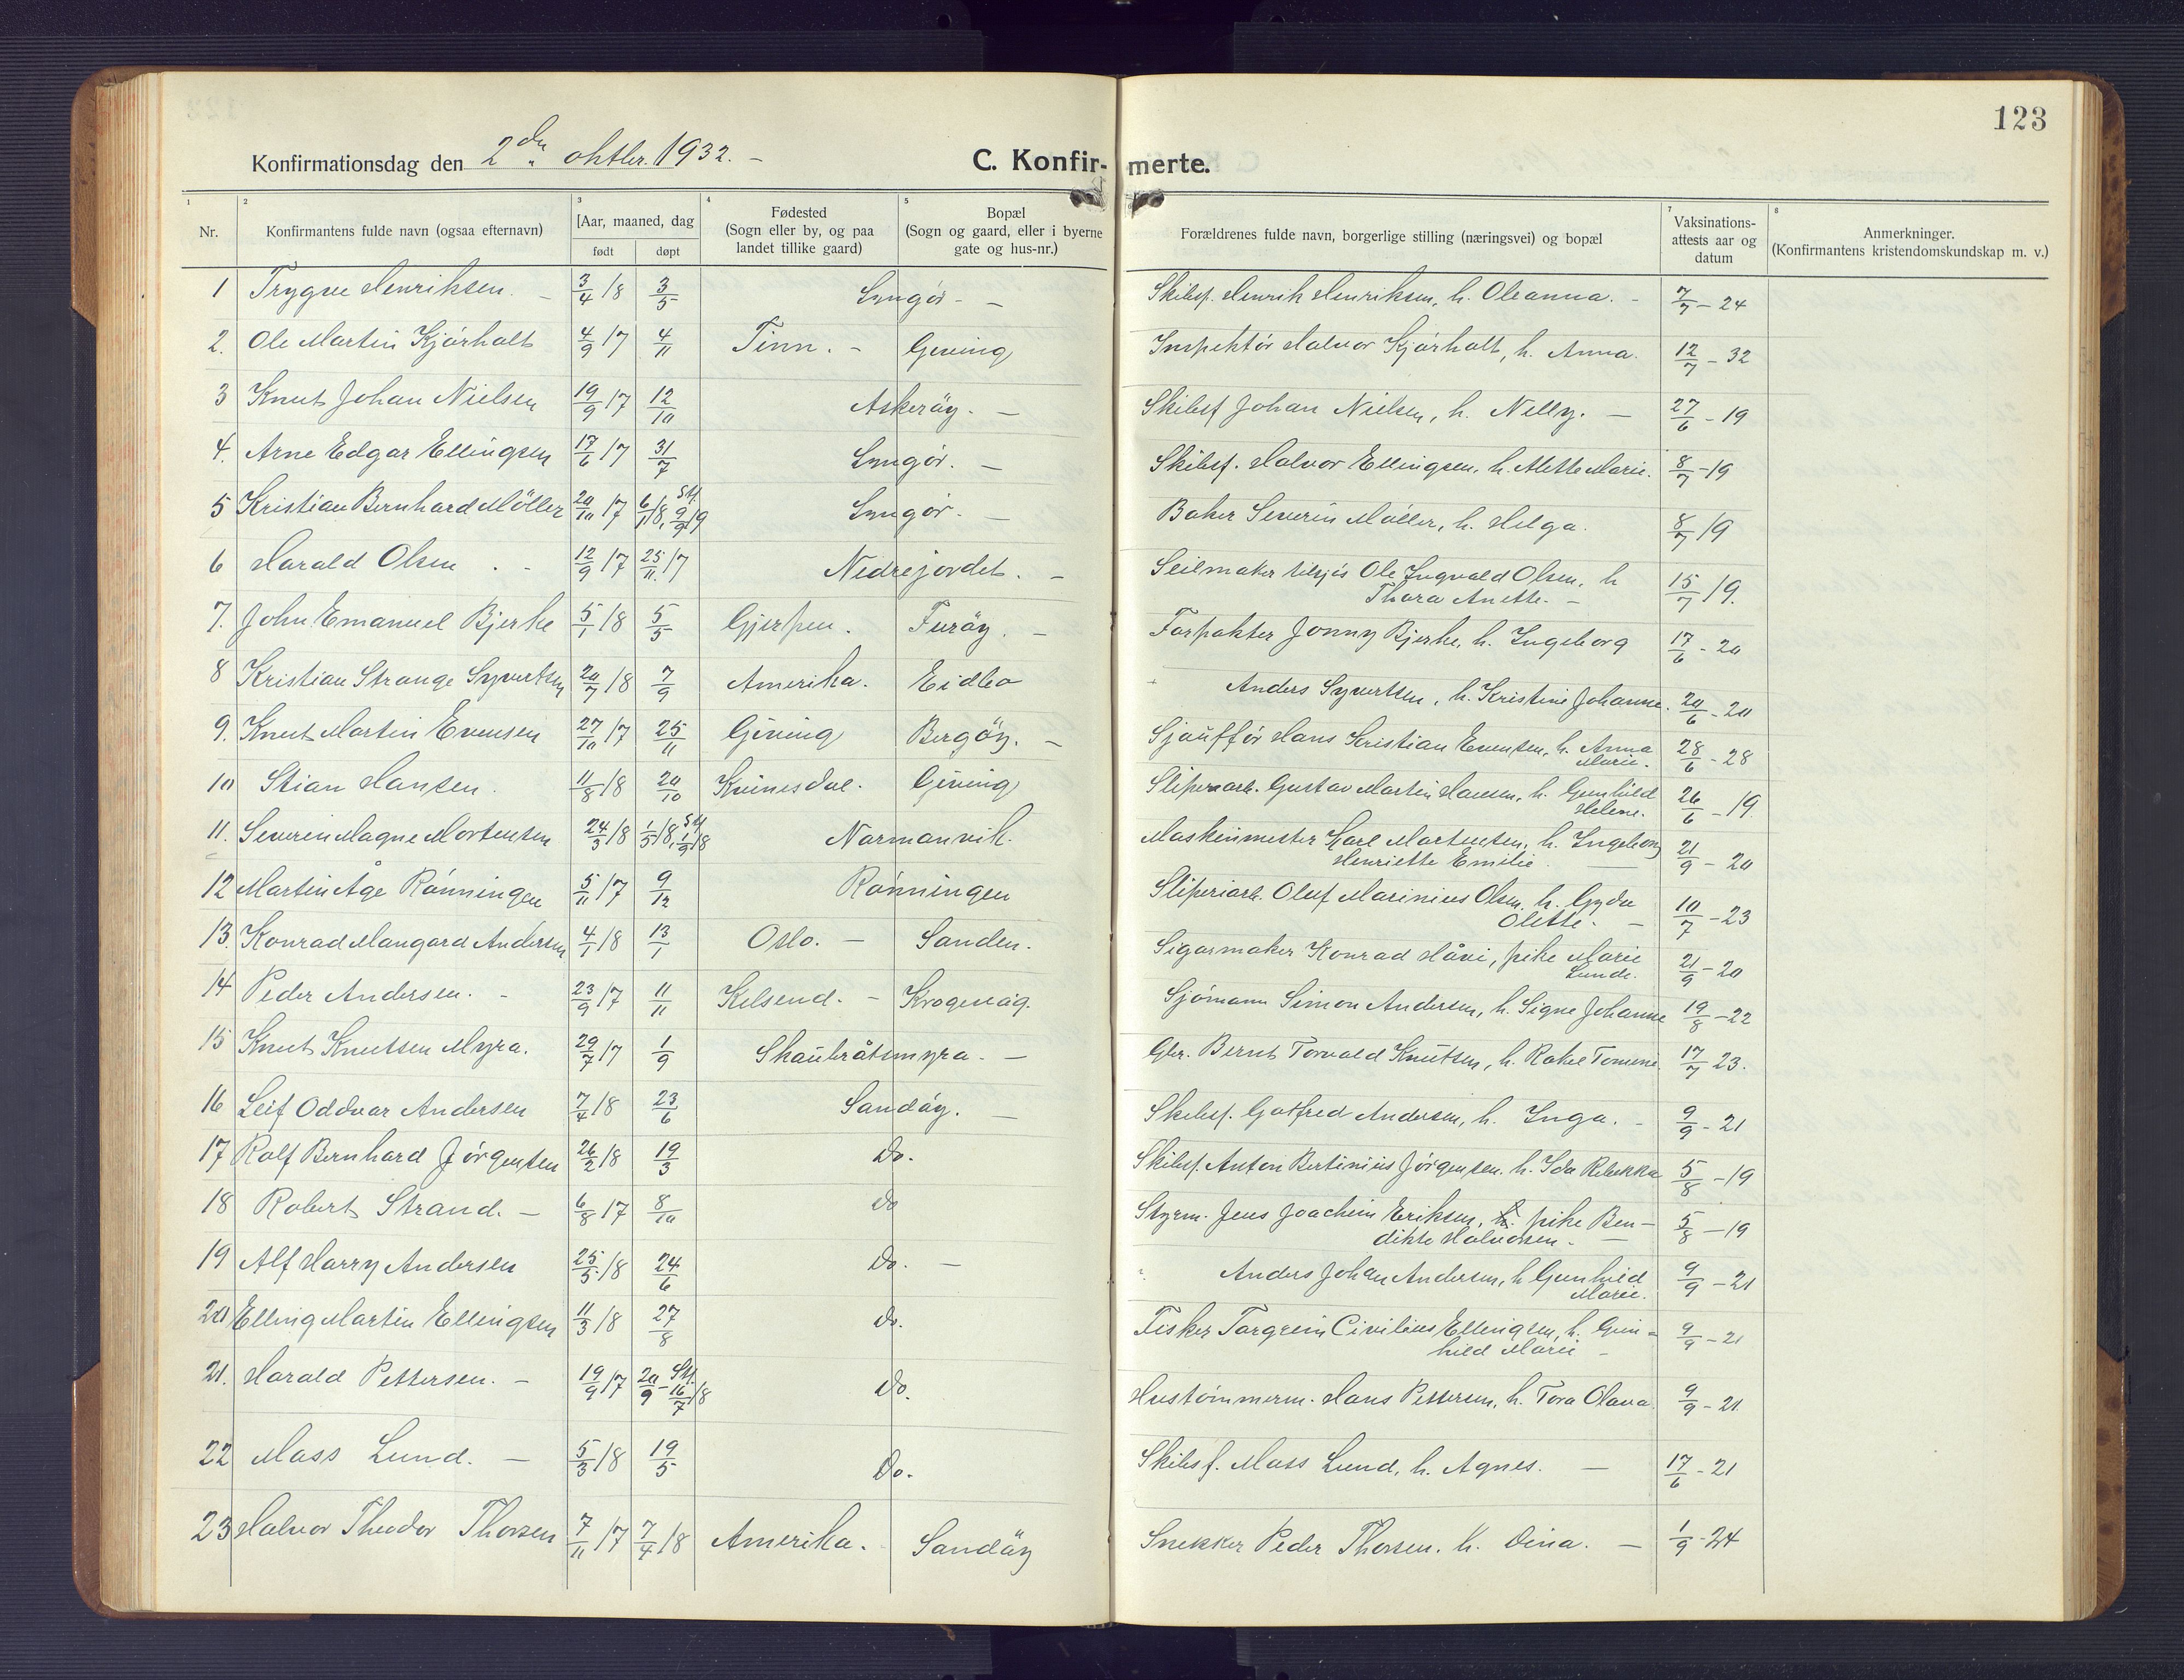 123
Konfirmationsdag den 2den oktbr. 1932. –
C. Konfir- merte.
1 2 3 4 5 7 8
Nr. Konfirmantens fulde navn (ogsaa efternavn) [Aar, maaned, dag født døpt Fødested (Sogn eller by, og paa landet tillike gaard) Bopæl (Sogn og gaard, eller i byerne gate og hus-nr.) Forældrenes fulde navn, borgerlige stilling (næringsvei) og bopæl Vaksinations-attests aar og datum Anmerkninger. (Konfirmantens kristendomskundskap m. v.)
1 Trygve Henriksen. – 3/4 18 3/5 Lyngör – – Skibsf. Henrik Henriksen, h. Oleanna. – 7/7 – 24
2. Ole Martin Kjörholt 4/9 17 4/11 Tinn. – Geving Inspektör Halvor Kjörholt, h. Anna. 12/7 – 32
3 Knut Johan Nielsen 19/9 17 12/10 Askeröy. – Skibsf Johan Nielsen, h. Nelly. – 27/6 – 19
4. Arne Edgar Ellingsen 17/6 17 31/7 Lyngör. – Skibsf. Halvor Ellingsen, h. Mette Marie. 8/7 – 19
5 Kristian Bernhard Möller 20/10 17 6/1 18, St. 9/9 19 Lyngör. – Baker Severin Möller, h. Helga. 8/7 19
6 Harald Olsen . – 12/9 17 25/11. 17 Nedrejordet. – Seilmaker tilsjös Ole Ingvald Olsen, h Thora Anette. – 15/7 19.
7. John Emanuel Bjerke 5/1 18 5/5 Gjerpen. Furöy. – Forpakter Jonny Bjerke, h. Ingeborg 17/6 – 20
8 Kristian Strange Syvertsen 20/7 18 7/9 Amerika. Eidbo Anders Syvertsen, h. Kristine Johanne. 20/6 – 20
9. Knut Martin Evensen 27/10 17 25/11 Geving Bergöy. – Sjauffør Hans Kristian Evensen, h. Anna Marie. 28/6 – 28
10 Stian Hansen. 11/8 18 20/10 Kvinesdal. Geving Sliperiarb. Gustav Martin Hansen, h. Gunhild Helene. 26/6 – 19.
11. Severin Magne Mortensen 24/3 18 1/5 18, St. 1/9 18 Narmanvik. Maskinmester Karl Mortensen, h. Ingeborg Henriette Emilie 21/9 – 20
12 Martin Åge Rönningen 5/11 17 9/12 Rönningen Sliperiarb. Oluf Marinius Olsen. h. Gyda Olette. – 10/7 – 23
13. Konrad Mangard Andersen 4/1 18 13/1 Oslo. – Sanden. Sigarmaker Konrad Håvi, pike Marie Lunde. 21/9 – 20
14 Peder Andersen. – 23/9 17 11/11 Kilsund. – Krogenæs. Sjömann Simon Andersen, h. Signe Johanne 19/8 – 22
15 Knut Knutsen Myra. 29/7 17 1/9 Skaubråtsmyra. – Gbr. Bernt Torvald Knutsen, h. Rakel Tomine. 17/7 23.
16 Leif Oddvar Andersen 7/4 18 23/6 Sandöy. – Skibsf. Gotfred Andersen, h. Inga. – 9/9 – 21
17 Rolf Bernhard Jörgensen 26/2 18 19/3 Do. Skibsf. Anton Bertinius Jörgensen. h. Ida Rebekka 5/8 – 19
18 Robert Strand. – 6/8 17 8/10 Do Styrm. Jens Joachim Eriksen, pike Bendikte Halvorsen. – 5/8 – 19
19 Alf Harry Andersen 25/5 18 24/6 Do. – Anders Johan Andersen, h Gunhild Marie. 9/9 – 21
20 Elling Martin Ellingsen 11/3 18 27/8 Do. Fisker Torgrim Civilius Ellingsen, h. Gunhild Marie – 9/9 – 21
21. Harald Pettersen. – 19/9 17 20/9 – St. 16/7 18 Do. Hustömmerm. Hans Pettersen, h. Tora Olava. 9/9 – 21.
22 Mass Lund. – 5/3 18 19/5 Do. Skibsf. Mass Lund, h. Agnes. – 17/6 – 21
23 Halvor Theodor Thorsen 7/11 17 7/4 18 Amerika. Sandöy Snekker Peder Thorsen. h. Dina. – 1/9 – 24